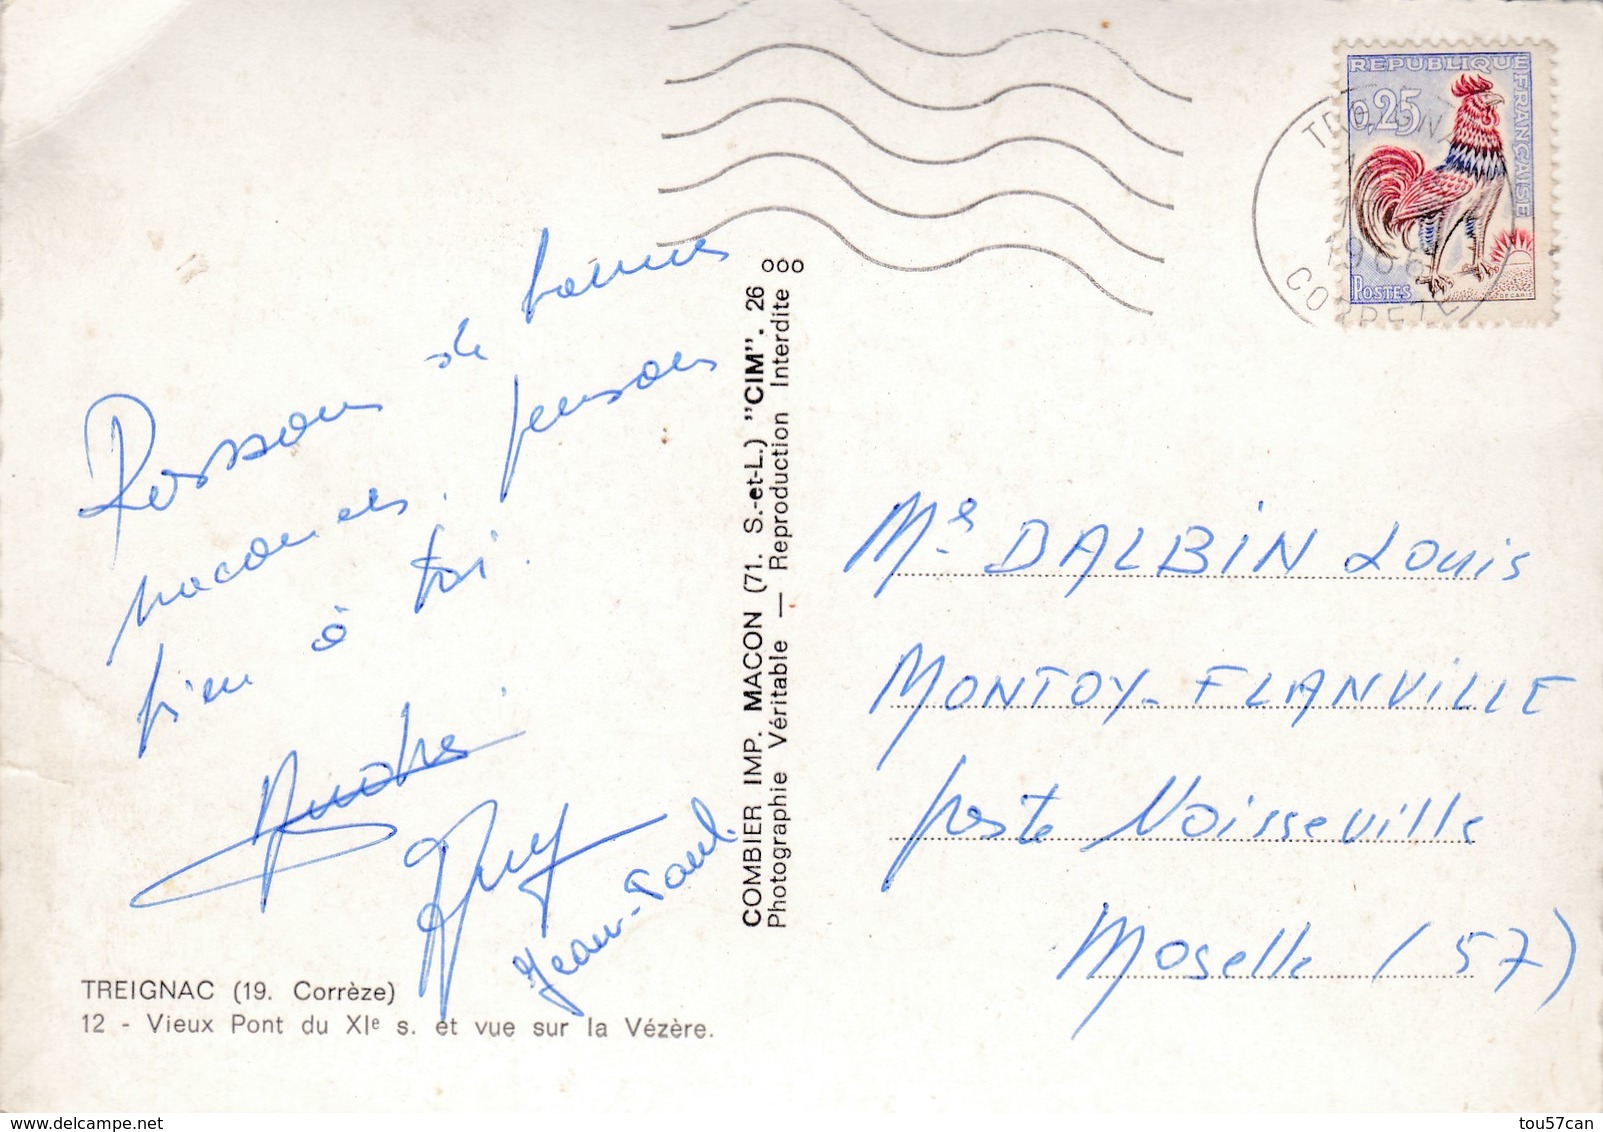 Passons de bonnes
vacances. pensons
bien à toi.
André
Guy
Jean-Paul.
TREIGNAC (19. Corrèze)
12 - Vieux Pont du XIe s. et vue sur la Vézère.
COMBIER IMP. MACON (71. S.-et-L.) "CIM". 26 ooo
Photographie Véritable — Reproduction Interdite
REPUBLIQUE FRANÇAISE
0,25
POSTES
DECARIS
TREIGNAC
CORREZE
Mr DALBIN Louis
MONTOY-FLANVILLE
poste Noisseville
Moselle (57)
delcampe.net
tou57can